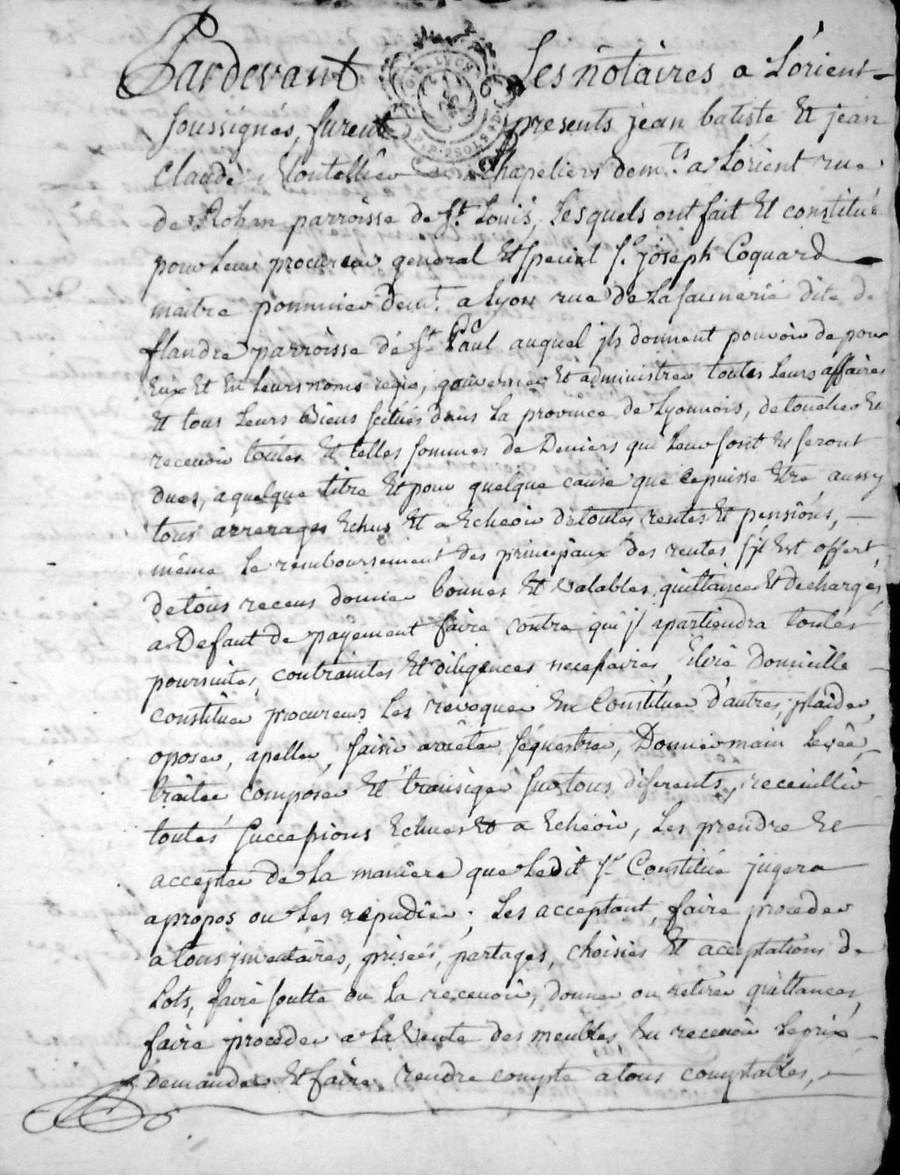 Pardevant Les nôtaires a Lorient
soussignés, furent presents jean batiste Et jean
Claude Chapeliers demts. a Lorient rue
de Rohan parroisse de St. Louis, Lesquels ont fait Et constitué
pour Leur procureur general Et special Sr. joseph Coquard
maitre demt. a Lyon rue de La Saunerie dite de
flandre parroisse dé St. Paul auquel jls donnent pouvoir de pour
Eux Et En Leurs noms regir, gouverner Et administrer toutes Leurs affaires
Et tous Leurs Biens scitués dans La province de Lyonnois, de toucher Et
recevoir toutes Et telles sommes de Deniers qui Leur sont Et seront
dues, a quelque titre Et pour quelque cause que ce puisse Etre aussy
tous arrerages Echus Et a Echeoir de toutes rentes Et pensions,
même le remboursement des principaux des rentes s'jl Est offert
de tous recens donner bonnes Et valables quittances Et decharges
a Defaut de payement faire contre qui jl apartiendra toutes
poursuites, contraintes Et diligences necessaires, Elire Domicille
constituer procureurs Les revoquer En Constituer d'autres, plaider,
oposer, apeller, saisir arrêter sequestrer, Donner main Levée,
traiter composer Et transiger sur tous diferents, receuillir
toutes successions Echues Et a Echeoir, Les prendre Et
accepter de La maniere que Ledit Sr. Constitué jugera
apropos ou Les repudier; Les acceptant, faire proceder
a tous jnventaires, prisées, partages, choisies Et aceptations de
Lots, faire soulte ou La recevoir, donner ou retirer quittances,
faire proceder a La vente des meubles En recevoir Le prix,
demander Et faire rendre compte a tous comptables,